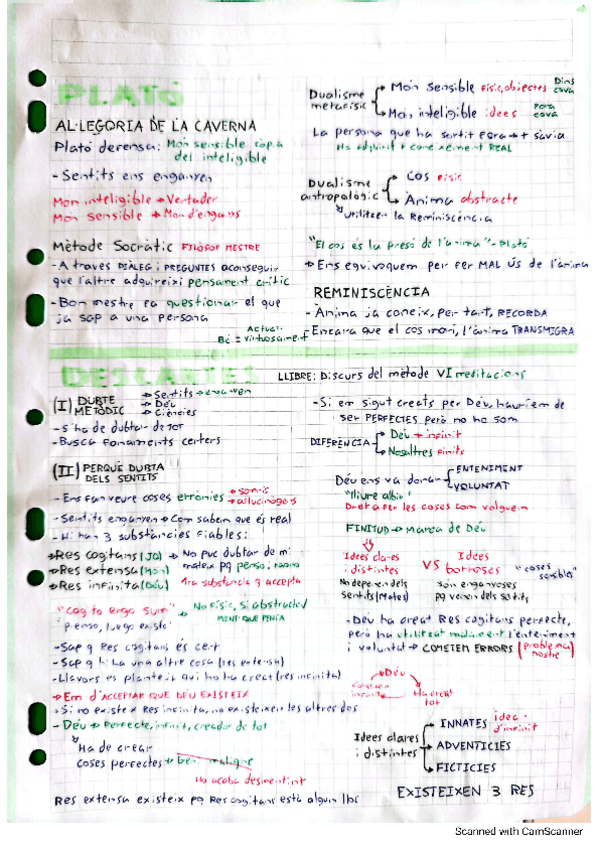 PLATÓ
AL·LEGORIA DE LA CAVERNA
Plató defensa: Món sensible còpia
del inteligible
- Sentits ens enganyen
Mon inteligible → Vertader
Mon sensible → Mon d'enganys
Mètode Socràtic FILÒSOF MESTRE
- A través DIÀLEG i PREGUNTES aconseguir
que l'altre adquireixi pensament crític
- Bon mestre fa questionar el que
ja sap a una persona
Actuar
Bé = virtuosament
Dualisme
metafísic
Mon sensible físic, objectes Dins
cova
Mon inteligible idees Fora
cova
La persona que ha sortit fora → + sàvia
Ha adquirit + coneixement REAL
Dualisme
antropològic
Cos físic
Ànima abstracte
Utilitzen la Reminiscència
"El cos és la presó de l'ànima" - Plató
→ Ens equivoquem per fer MAL ÚS de l'ànima
REMINISCÈNCIA
- Ànima ja coneix, per tant, RECORDA
- Encara que el cos mori, l'ànima TRANSMIGRA
DESCARTES
LLIBRE: Discurs del mètode VI meditacions
(I) DUBTE
METÒDIC
→ Sentits → enganyen
→ Déu
→ Ciències
- S'ha de dubtar de tot
- Busca fonaments certers
(II) PERQUÈ DUBTA
DELS SENTITS
- Ens fan veure coses errònies → somnis
→ al·lucinògens
- Sentits enganyen → Com sabem que és real
- Hi han 3 substàncies fiables:
→ Res cogitans (JO) → No puc dubtar de mi
mateix pq penso i raono
→ Res extensa (Món)
→ Res infinita (Déu) 1ra substància q accepta
"cogito ergo sum" → No físic, sí abstracte
"pienso, luego existo" MENT QUE PENSA
- Sap q Res cogitans és cert
- Sap q hi ha una altre cosa (res extensa)
- Llavors es planteja qui ho ha creat (res infinita)
→ Em d'ACCEPTAR QUE DÉU EXISTEIX
- Si no existeix Res infinita, no existeixen les altres dos
- Déu → Perfecte, infinit, creador de tot
Ha de crear
coses perfectes → geni maligne
Ho acaba desmentint
Res extensa existeix pq Res cogitans està algun lloc
- Si em sigut creats per Déu, hauríem de
ser PERFECTES però no ho som
DIFERÈNCIA
Déu → infinit
Nosaltres finits
Déu ens va donar
ENTENIMENT
VOLUNTAT
"lliure albir"
Dret a fer les coses com volguem
FINITUD → Marca de Déu
Idees clares
i distintes
VS
Idees
borroses
"coses
sensibles"
No depenen dels
sentits (Mates)
Són enganyoses
pq venen dels sentits
- Déu ha creat Res cogitans perfecte,
però ha utilitzat malament l'enteniment
i voluntat → COMETEM ERRORS (problema
nostre)
→ Déu
Ha creat
tot
Idees clares
i distintes
INNATES idea
d'infinit
ADVENTICIES
FICTICIES
EXISTEIXEN 3 RES
Scanned with CamScanner